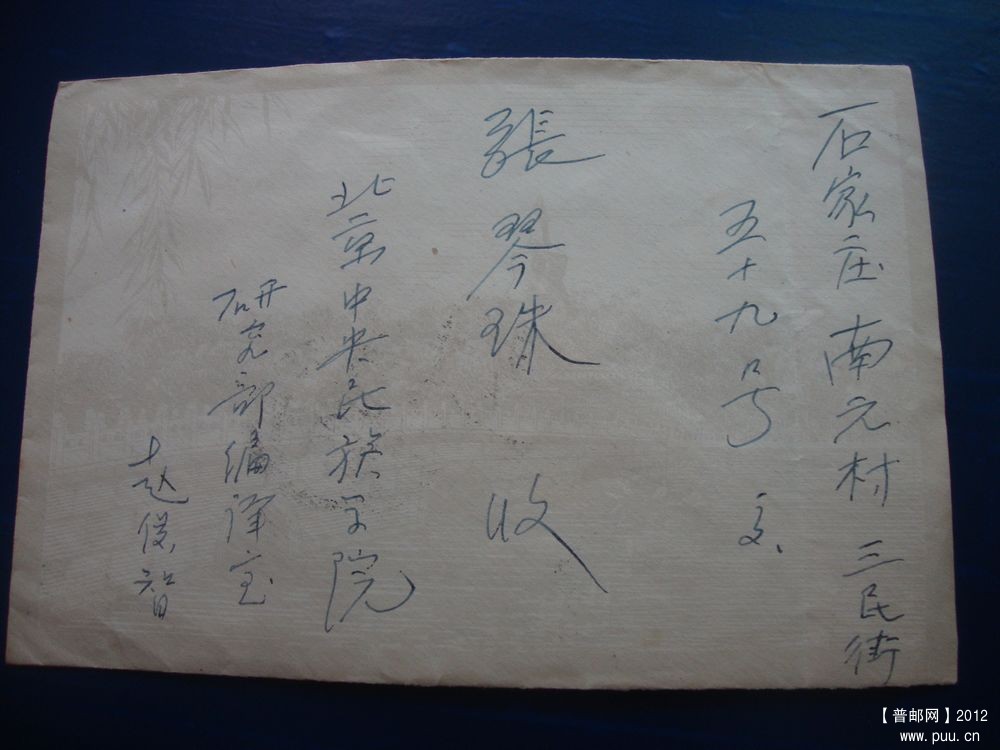 石家庄南元村三民街
五十九号交
張琴珠收
北京中央民族学院
研究部编译室
赵俊智
【普邮网】2012
www.puu.cn